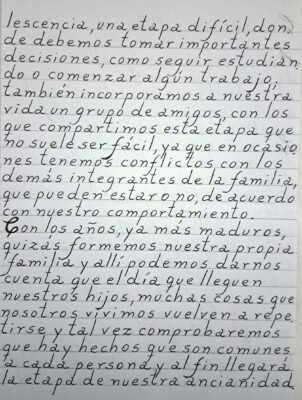 lescencia, una etapa difícil, don
de debemos tomar importantes
decisiones, como seguir estudian
do o comenzar algún trabajo,
también incorporamos a nuestra
vida un grupo de amigos, con los
que compartimos esta etapa que
no suele ser fácil, ya que en ocasio
nes tenemos conflictos con los
demás integrantes de la familia,
que pueden estar o no, de acuerdo
con nuestro comportamiento.
Con los años, ya más maduros,
quizás formemos nuestra propia
familia y allí podemos darnos
cuenta que el día que lleguen
nuestros hijos, muchas cosas que
nosotros vivimos vuelven a repe
tirse y tal vez comprobaremos
que hay hechos que son comunes
a cada persona y al fin llegará
la etapa de nuestra ancianidad